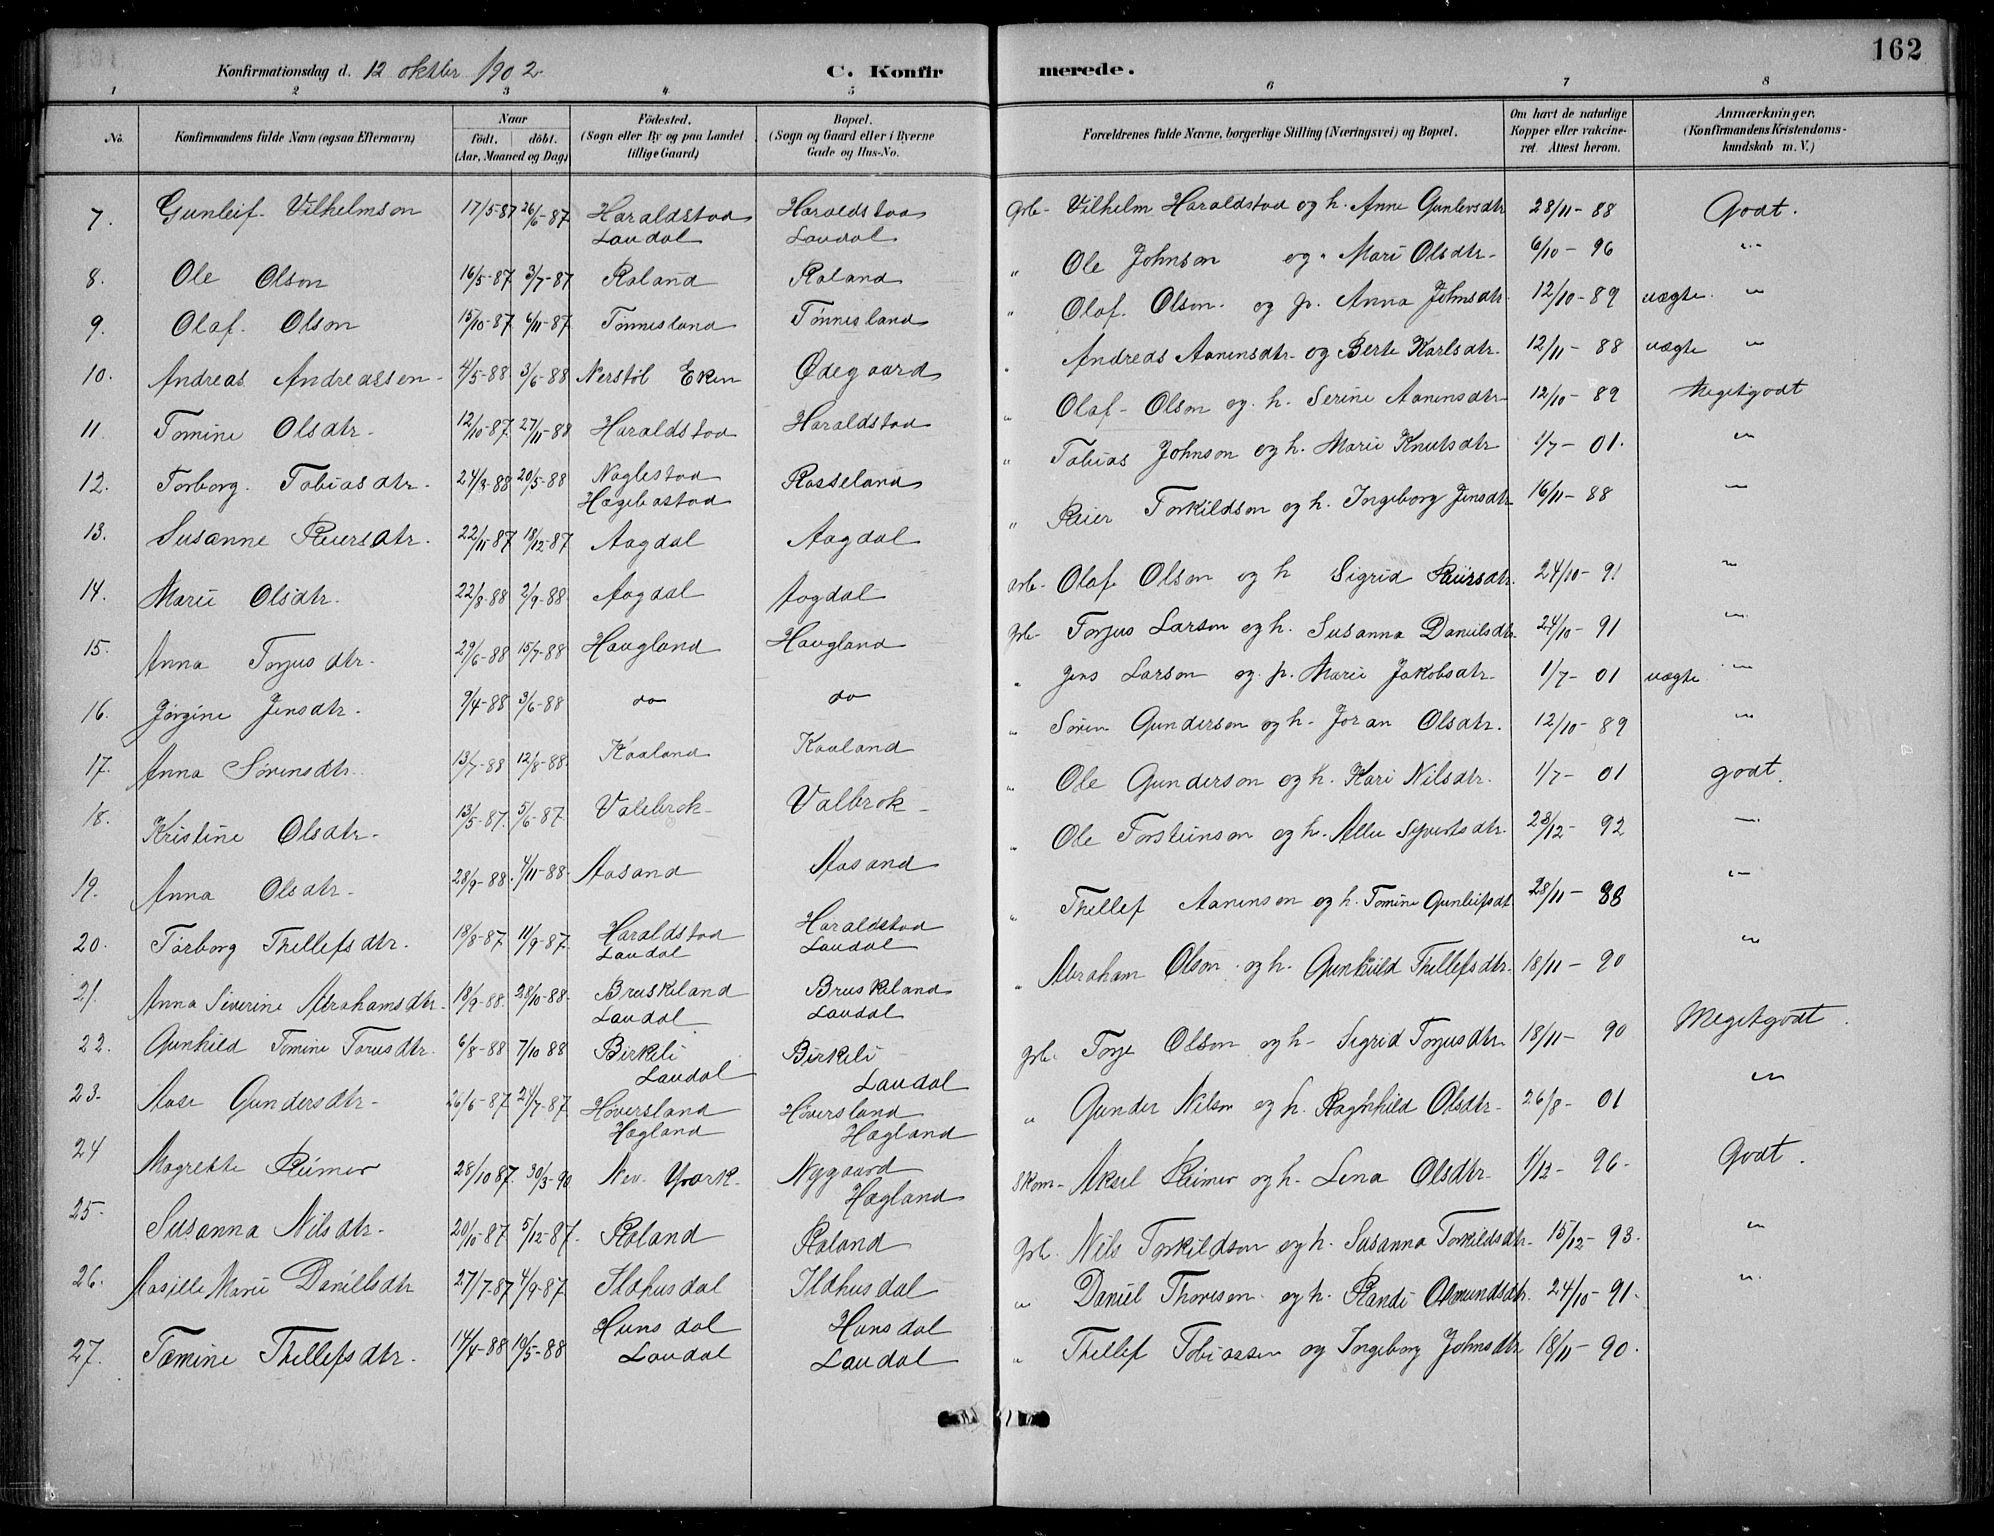 162
Konfirmationsdag d. 12 oktbr 1902.
C. Konfir
merede.
1 2 3 4 5 6 7 8
No. Konfirmandens fulde Navn (ogsaa Efternavn) Naar født. døbt. (Aar, Maaned og Dag) Fødested. (Sogn eller By og paa Landet tillige Gaard) Bopæl. (Sogn og Gaard eller i Byerne Gade og Hus-No. Forældrenes fulde Navne, borgerlige Stilling (Næringsvei) og Bopæl. Om havt de naturlige Kopper eller vakcineret. Attest herom. Anmærkninger. (Konfirmandens Kristendomskundskab m. V.)
7. Gunleif Vilhelmson 17/5-87 26/6-87 Haraldstad Laudal Haraldstad Laudal Grb- Vilhelm Haraldstad og h. Anne Gunlevsdtr 28/11-88 Godt.
8. Ole Olson 16/5-87 3/7-87 Roland Roland " Ole Johnson og " Mari Olsdtr- 6/10-96 "
9. Olaf Olson 15/10-87 6/11-87 Tønnesland Tønnesland " Olaf Olson og p. Anna Johnsdtr. 12/10-89 vægte. "
10. Andreas Andreassen 4/5-88 3/6-88 Nerstøl Eken Ødegaard " Andreas Aanensdtr- og Berte Karlsdtr. 12/11-88 vægte "
11. Tomine Olsdtr- 12/10-87 27/11-88 Haraldstad Haraldstad " Olaf Olson og h. Serine Aanensdtr- 12/10-89 Megetgodt
12. Torborg Tobiasdtr- 24/3-88 20/5-88 Naglestad Hægebostad Rosseland " Tobias Johnson og h. Marie Knutsdtr 1/7-01. "
13. Susanne Reiersdtr. 22/11-87 18/12-87 Aagdal Aagdal " Reier Torkildson og h. Ingeborg Jensdtr 16/11-88 "
14. Marie Olsdtr. 22/8-88 2/9-88 Aagdal Aagdal Grb- Olaf Olson og h Sigrid Reiersdtr. 24/10-91 "
15. Anna Torjusdtr. 29/6-88 15/7-88 Haugland Haugland Grb- Torjus Larson og h. Susanna Danielsdtr. 24/10-91 "
16. Jørgine Jensdtr. 7/4-88 3/6-88 do do " Jens Larson og p. Marie Jakobsdtr. 1/7-01 vægte "
17. Anna Sørensdtr. 13/7-88 12/8-88 Kaaland Kaaland " Søren Gunderson og h- Joran Olsdtr. 12/10-89 "
18. Kristine Olsdtr- 13/5-87. 5/6-87. Valebrok- Valbrok- " Ole Gunderson og h. Kari Nilsdtr. 1/7-01 godt.
19. Anna Olsdtr- 28/9-88. 4/11-88- Aasand Aasand " Ole Torsteinson og h. Syvertsdtr. 28/12-92 "
20. Torborg Thellefsdtr. 18/8-87 11/9-87 Haraldstad Laudal Haraldstad Laudal " Thellef Aanenson og h. Tomine Gunleifsdt 28/11-88 "
21. Anna Siverine Abrahamsdtr- 18/9-88 28/10-88 Bruskeland Laudal Bruskeland Laudal " Abraham Olson og h. Gunhild Thellefsdtr. 18/11-90 "
22. Gunhild Tomine Torjusdtr. 6/8-88 7/10 88 Birkeli Laudal Birkeli Laudal Grb. Torje Olson og h- Sigrid Torjusdtr 18/11-90 Megetgodt.
23. Aase Gundersdtr- 26/6-87 24/7-87 Høversland Hægland Høversland Hægland " Gunder Nilson og h. Ragnhild Olsdtr- 26/8-01 "
24 Magrethe Reimer 28/10 87. 30/3-90 Nev. York- Nygaard Hægland Skom- Aksel Reimer og h- Lena Olsdtr- 1/12-96. Godt.
25. Susanna Nilsdtr- 20/10-87 5/12-87. Roland Roland Grb. Nils Torkildson og h. Susanna Torkildsdtr. 15/12-93. "
26. Aasille Marie Danielsdtr 27/7-87 4/9-87 Ildhusdal Ildhusdal " Daniel Thorsen og h. Randi Osmundsdtr. 24/10-91. "
27. Tomine Thellefsdtr. 14/4-88 10/5-88 Hunsdal Laudal Hunsdal Laudal " Thellef Tobiassen og Ingeborg Johnsdtr 18/11-90.